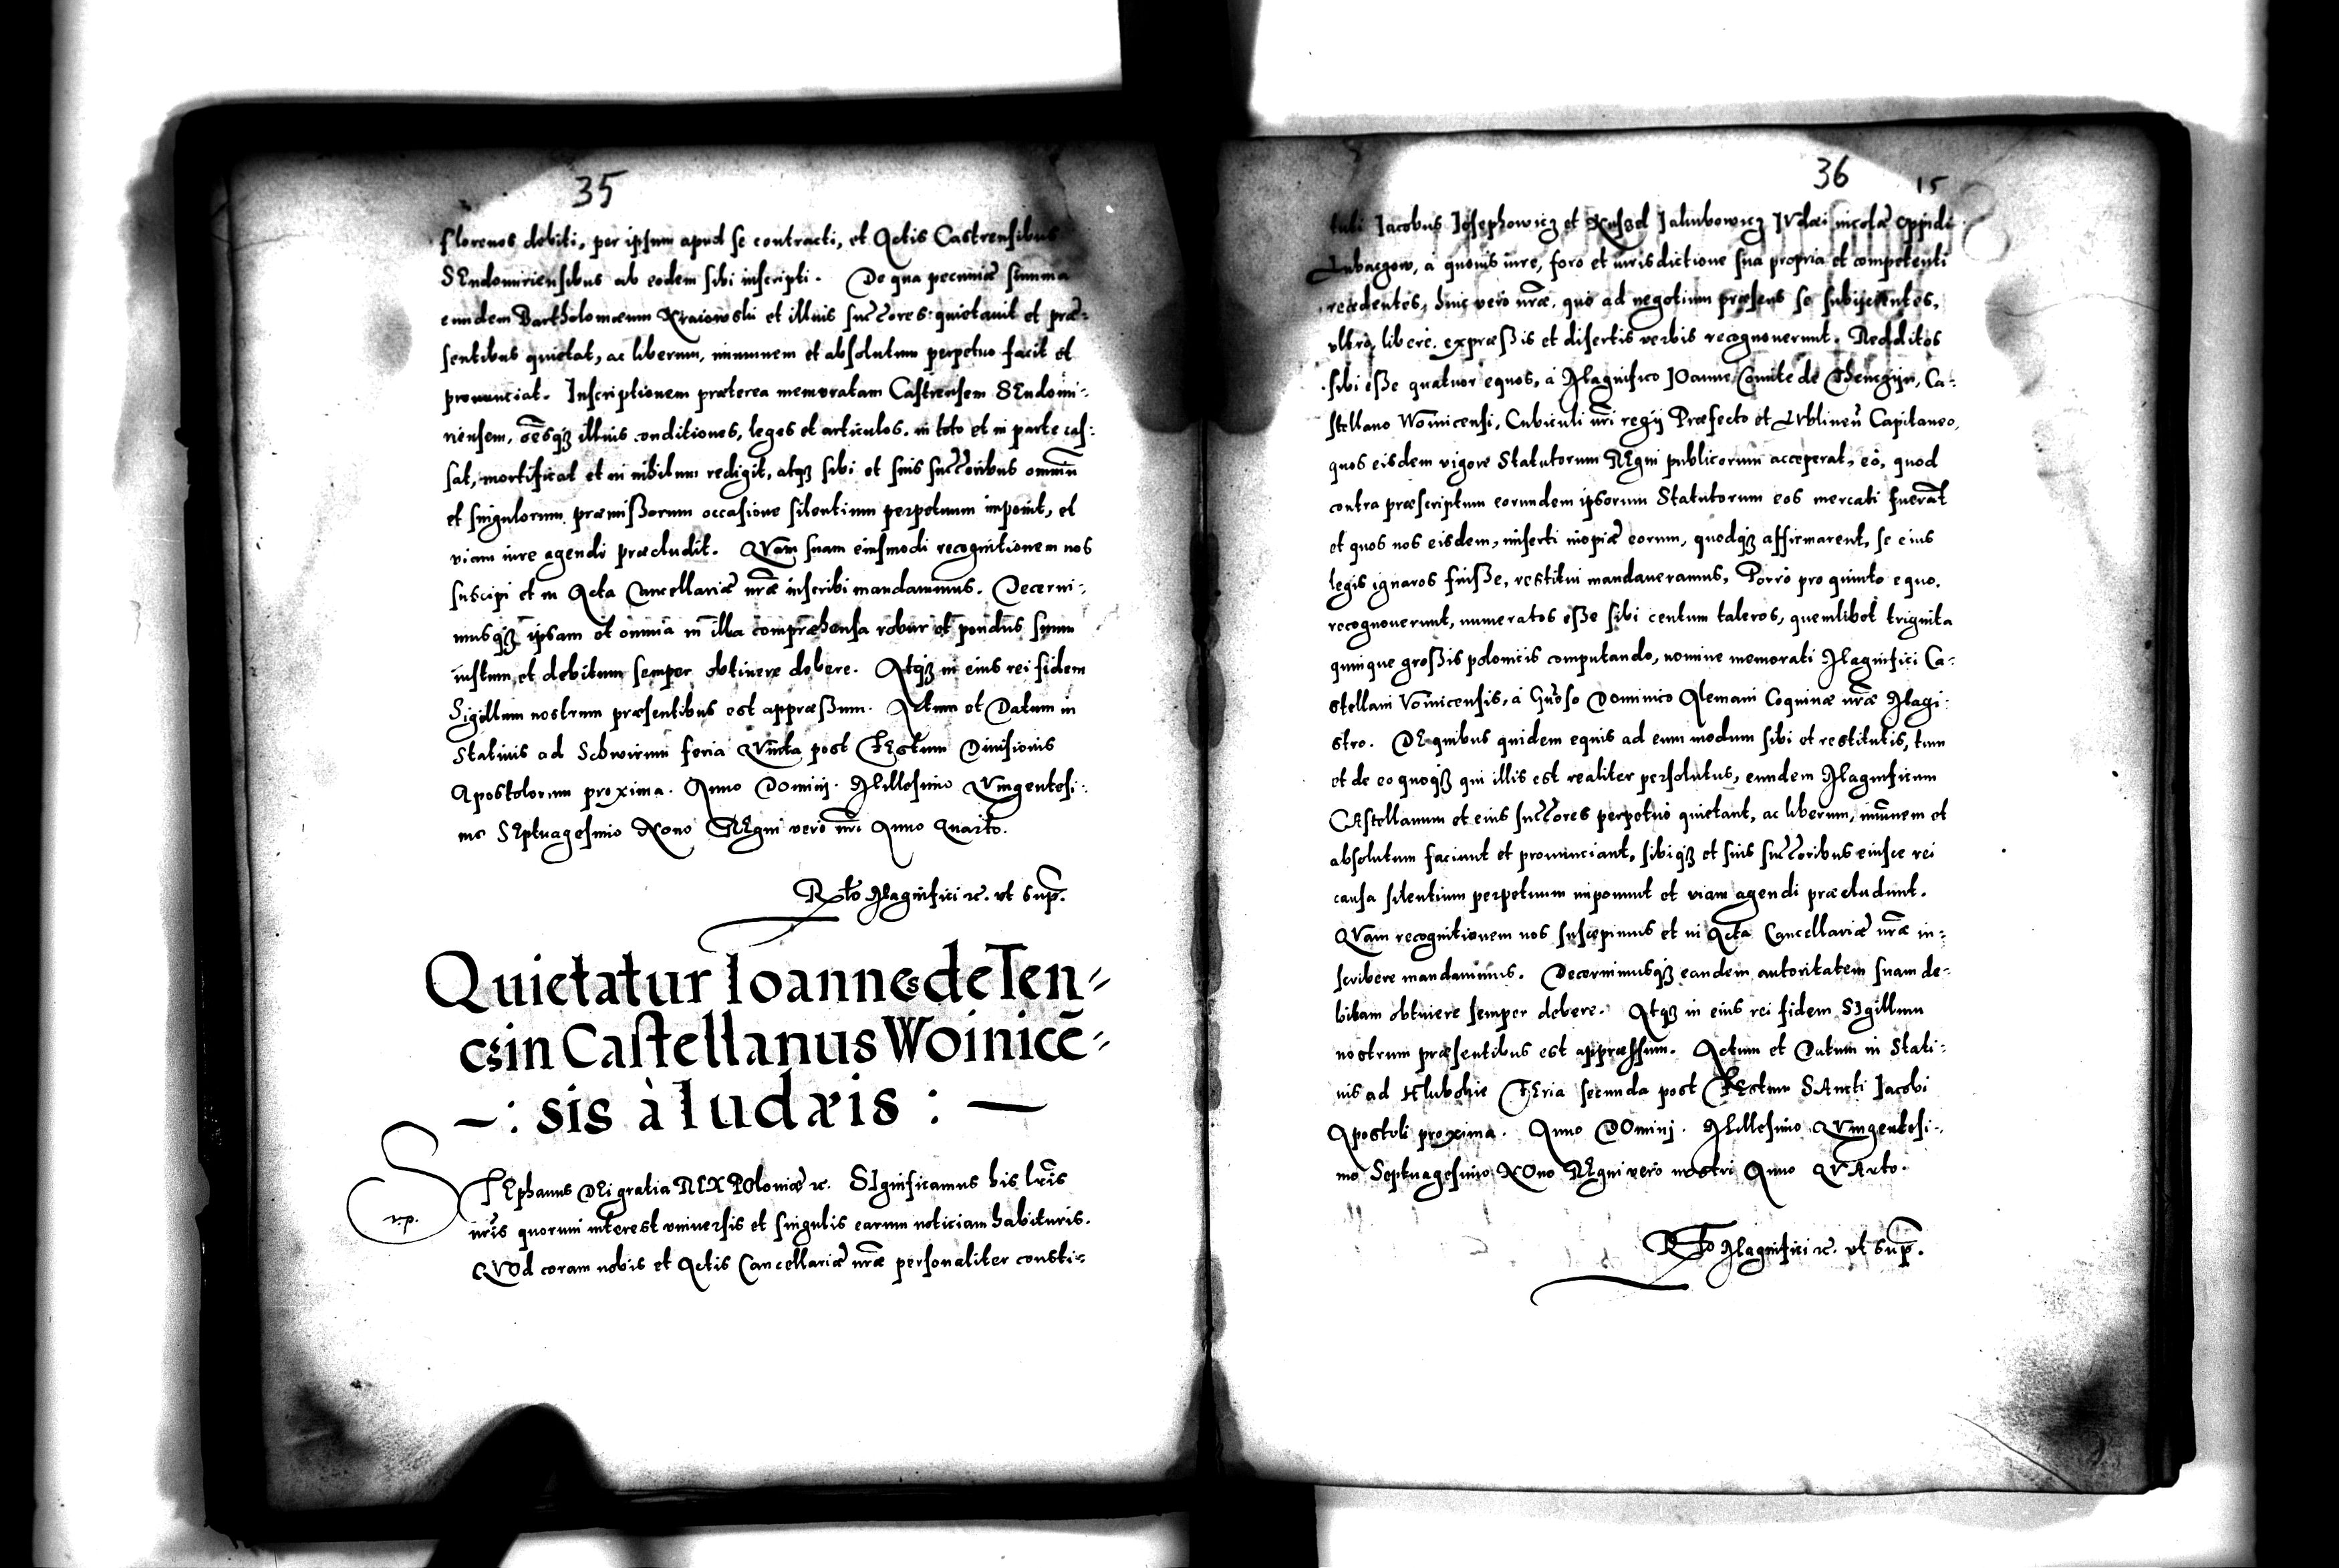 35
florenos debiti, per ipsum apud se contracti, et Actis Castrensibus
SEndomiriensibus ab eodem sibi inscripti. De qua pecuniæ summa
eundem Bartholomæum Kraiowski et illius succores quietauit et præ-
sentibus quietat, ac liberum, immunem et absolutum perpetuo facit et
pronunciat. Inscriptionem præterea memoratam Castrensem SEndomi-
riensem, oēsqȝ illius conditiones, leges et articulos, in toto et in parte cas-
sat, mortificat et in nihilum redigit, atqȝ sibi et suis succoribus omniū
et singulorum præmissorum occasione silentium perpetuum imponit, et
viam iure agendi præcludit. QVam suam eiusmodi recognitionem nos
suscipi et in Acta Cancellariæ nræ inscribi mandauimus. Decerni-
musqȝ ipsam et omnia in illa compræhensa robur et pondus suum
iustum et debitum semper obtinere debere. Atqȝ in eius rei fidem
Sigillum nostrum præsentibus est appræssum. Actum et Datum in
Statiuis ad Schwirum feria QVinta post FEstum Diuisionis
Apostolorum proxima. Anno Dominj. Millesimo QVingentesi-
mo SEptuagesimo Nono REgni vero nri Anno Quarto.
Rto Magnifici rc. vt supr.
Quietatur Ioannes de Ten-
czin Castellanus Woinicē-
-: sis à Iudæis : -
STEphanus DEi gratia REX POloniæ rc. SIgnificamus his lris
nris quorum interest vniuersis et singulis earum noticiam habituris.
QVOd coram nobis et Actis Cancellariæ nræ personaliter consti-
r.p.
36
15
tuti Jacobus Josephowicz et Jakubowicz IVdæi incolæ oppidi
Lubaczow, a quouis iure, foro et iurisdictione sua propria et competenti
recedentes, huic vero nræ, quo ad negotium præsens se subijcientes,
vltrò, libere, expræssis et disertis verbis recognouerunt. Redditos
sibi esse quatuor equos, à Magnifico IOanne Comite de Thenczyn, Ca-
stellano Woinicensi, Cubiculi nri regij Præfecto et LVblineñ Capitaneo,
quos eisdem vigore Statutorum REgni publicorum acceperat, eò, quod
contra præscriptum eorundem ipsorum Statutorum eos mercati fuerāt
et quos nos eisdem, miserti inopiæ eorum, quodqȝ affirmarent, se eius
legis ignaros fuisse, restitui mandaueramus, Porrò pro quinto equo,
recognouerunt, numeratos esse sibi centum taleros, quemlibet triginta
quinque grossis polonicis computando, nomine memorati Magnifici Ca-
stellani Voinicensis, à Gñoso Dominico Alemani Coquinæ nræ Magi-
stro. DE quibus quidem equis ad eum modum sibi et restitutis, tum
et de eo quoqȝ qui illis est realiter persolutus, eundem Magnificum
CAstellanum et eius succores perpetuò quietant, ac liberum, imūnem et
absolutum faciunt et pronunciant, sibiqȝ et suis succoribus eiusce rei
causa silentium perpetuum imponunt et viam agendi præcludunt.
QVam recognitionem nos suscepimus et in Acta Cancellariæ nræ in-
scribere mandauimus. Decernimusqȝ eandem autoritatem suam de-
bitam obtinere semper debere. Atqȝ in eius rei fidem SIgillum
nostrum præsentibus est appræssum. Actum et Datum in Stati-
uis ad Hlubokie FEria secunda post FEstum SAncti Jacobi
Apostoli proxima. Anno DOminj. Millesimo QVingentesi-
mo Septuagesimo NOno REgni vero nostri Anno QVArto.
Rto Magnifici rc. vt supr.